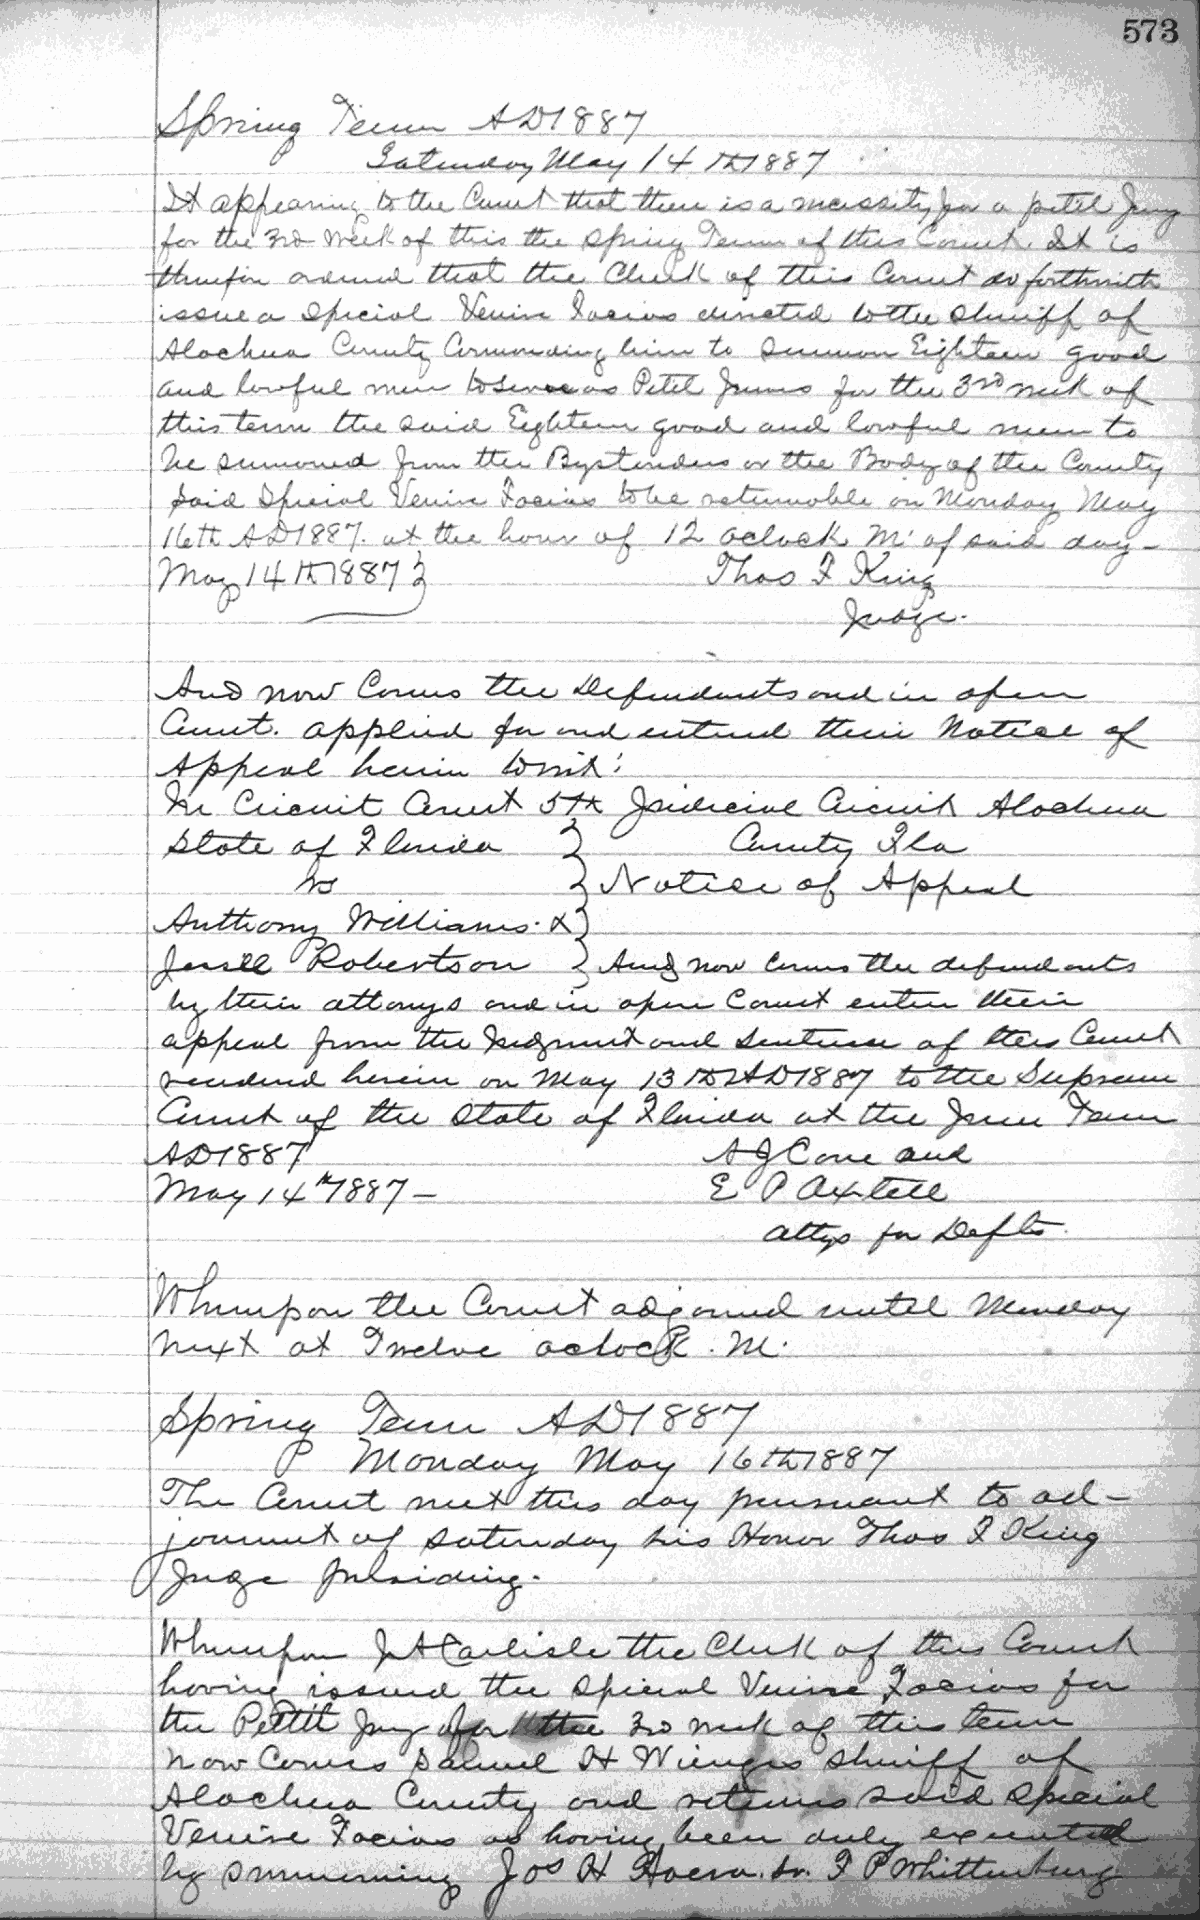 573
Spring Term AD1887
Saturday May 14th 1887
It appearing to the Court that there is a necessity for a petit Jury
for the 3rd Week of this the Spring Term of this Court. It is
therefore ordered that the Clerk of this Court do forthwith
issue a Special Venire Facias directed to the Sheriff of
Alachua County Commanding him to summon Eighteen good
and lawful men to serve as Petit Jurors for the 3rd week of
this term the said Eighteen good and lawful men to
be summoned from the Bystanders or the Body of the County
said Special Venire Facias to be returnable on Monday May
16th AD1887. at the hour of 12 oclock M. of said day —
May 14th 1887 } Thos F King
Judge.
And now Comes the Defendants and in open
Court. applied for and entered their Notice of
Appeal herein towit:
In Circuit Court 5th Judicial Circuit Alachua
State of Florida } County Fla
vs } Notice of Appeal
Anthony Williams. & }
Jessee Robertson } And now comes the defendants
by their attorneys and in open Court enter their
appeal from the Judgment and Sentence of this Court
rendered herein on May 13th AD1887 to the Supreme
Court of the State of Florida at the June Term
AD1887 A J Cone and
May 14th 1887 — E P Axtell
attys for Defts.
Whereupon the Court adjourned until Monday
next at Twelve oclock. M.
Spring Term AD1887
Monday May 16th 1887
The Court met this day pursuant to ad-
journmt of Saturday his Honor Thos F King
Juge presiding.
Whereupon J A Carlisle the Clerk of this Court
having issued the Special Venire Facias for
the Petit Jury for the 3rd week of this term
now Comes Samuel H Wienges Sheriff of
Alachua County and returns said Special
Venire Facias as having been duly executed
by summoning Jos H Sr. F P Whittenburg